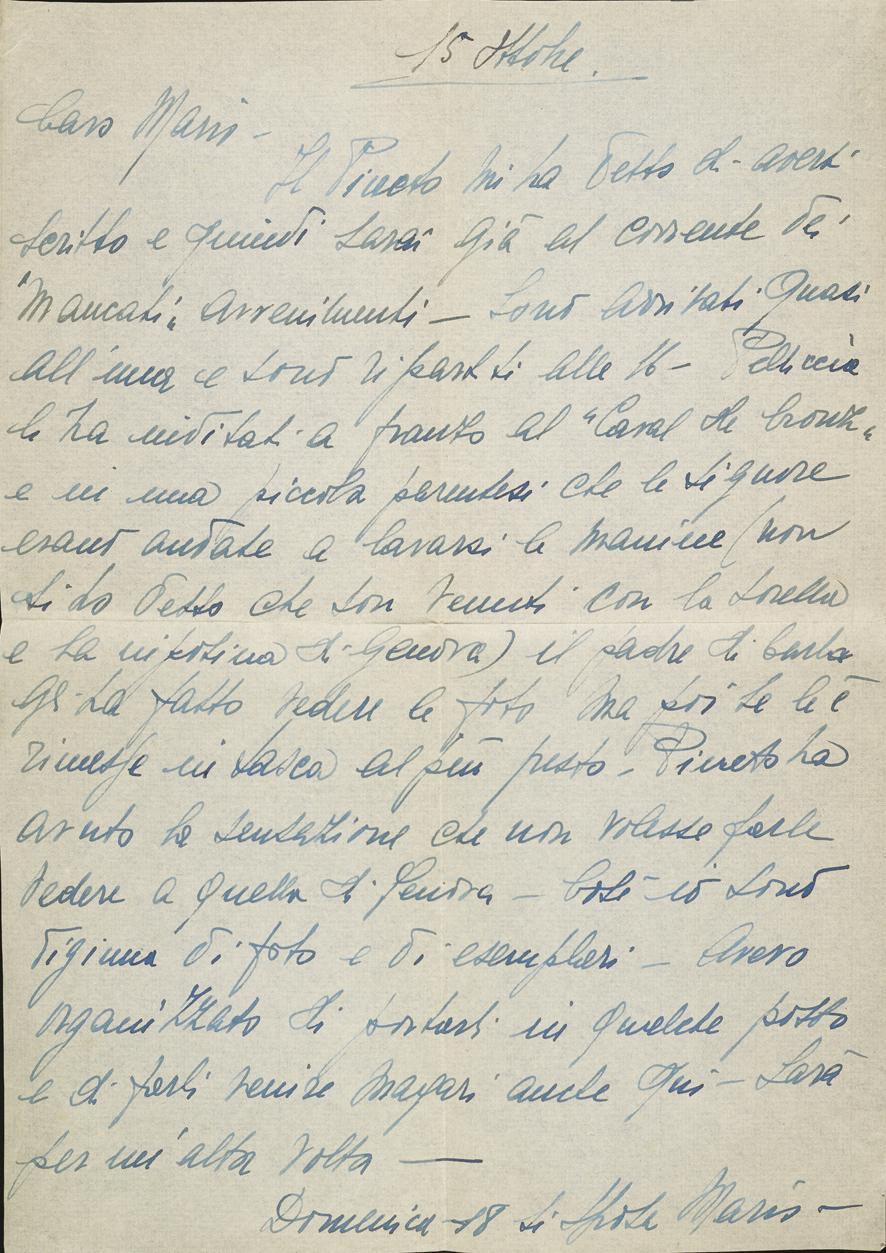 15 Ottobre.
Caro Mario -
Il Pineto mi ha detto di averti
scritto e quindi sarai già al corrente dei
"Mancati" avvenimenti - Sono arrivati quasi
all'una e sono ripartiti alle 16 - Pelliccia
li ha invitati a pranzo al "Caval de bronz"
e in una piccola parentesi che le signore
erano andate a lavarsi le manine (non
ti ho detto che son venuti con la sorella
e la nipotina di Genova) il padre di Carla
gli ha fatto vedere le foto ma poi se le è
rimesse in tasca al più presto - Pineto ha
avuto la sensazione che non volesse farle
vedere a quella di Genova - Così io sono
digiuna di foto e di esemplari - Avevo
organizzato di portarli in qualche posto
e di farli venire magari anche qui - Sarà
per un'alta volta -
Domenica 18 si sposa Mario -